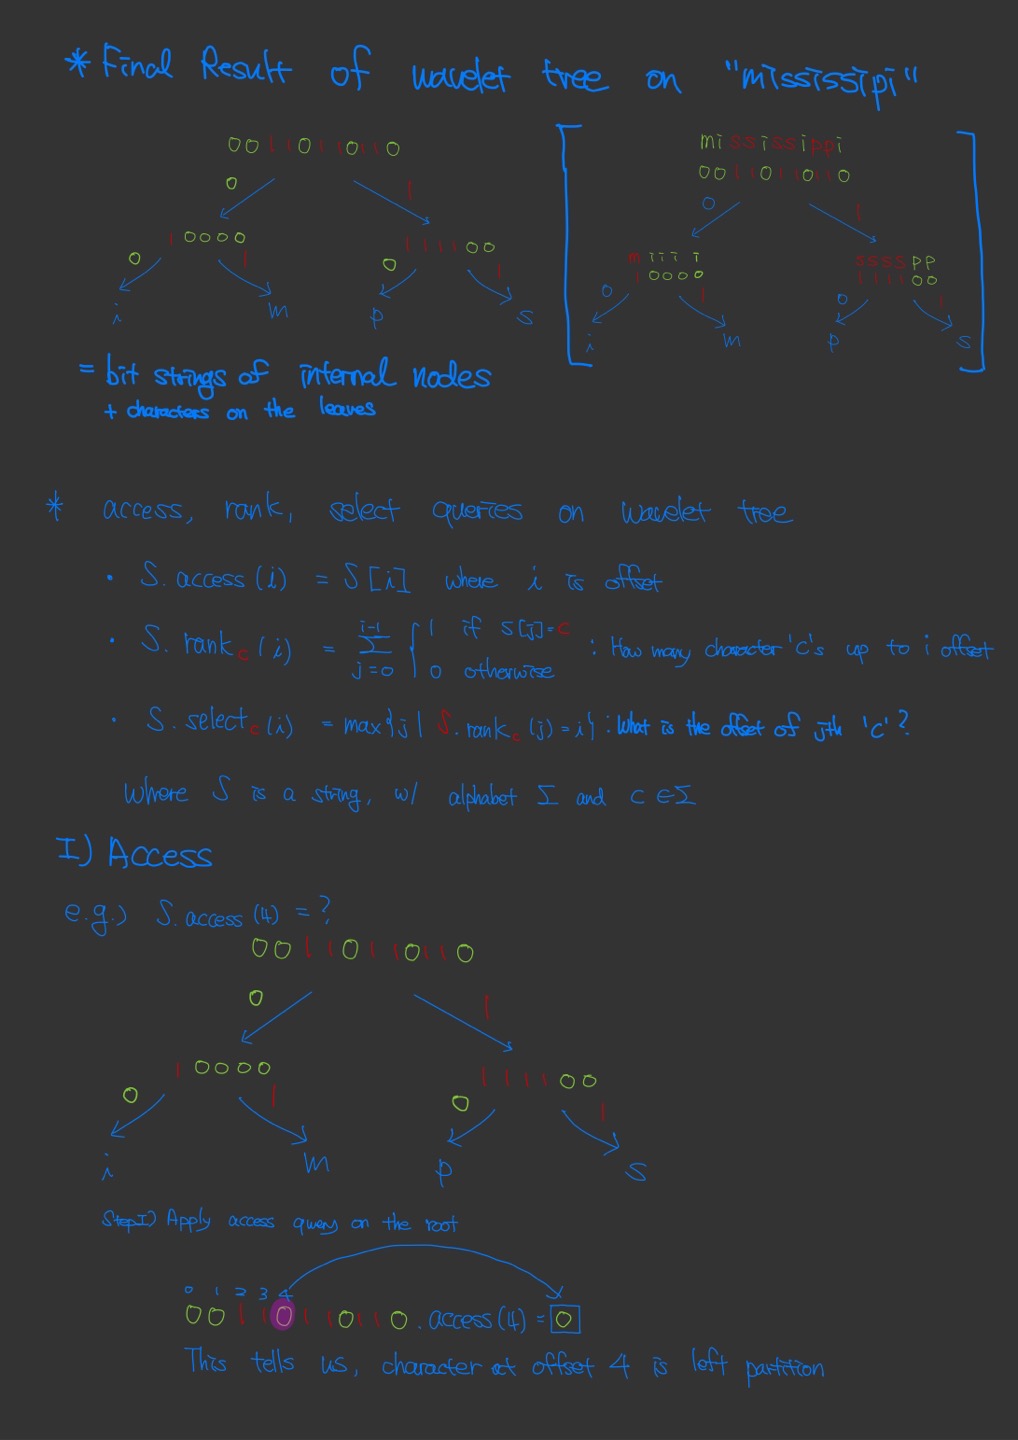 * Final Result of wavelet tree on "mississipi"
00110110110
0 1
10000 111100
0 1 0 1
i m p s
mississippi
00110110110
0 1
m i i i i s s s s p p
10000 111100
0 1 0 1
i m p s
= bit strings of internal nodes
+ characters on the leaves
* access, rank, select queries on wavelet tree
• S.access(i) = S[i] where i is offset
• S.rank_c(i) = Σ_{j=0}^{i-1} { 1 if S[j]=c : How many character 'c's up to i offset
0 otherwise
• S.select_c(i) = max{j | S.rank_c(j) = i} : What is the offset of jth 'c'?
Where S is a string, w/ alphabet Σ and c ∈ Σ
I) Access
e.g.) S.access(4) = ?
00110110110
0 1
10000 111100
0 1 0 1
i m p s
Step I) Apply access query on the root
0 1 2 3 4
00110110110 . access(4) = 0
This tells us, character at offset 4 is left partition